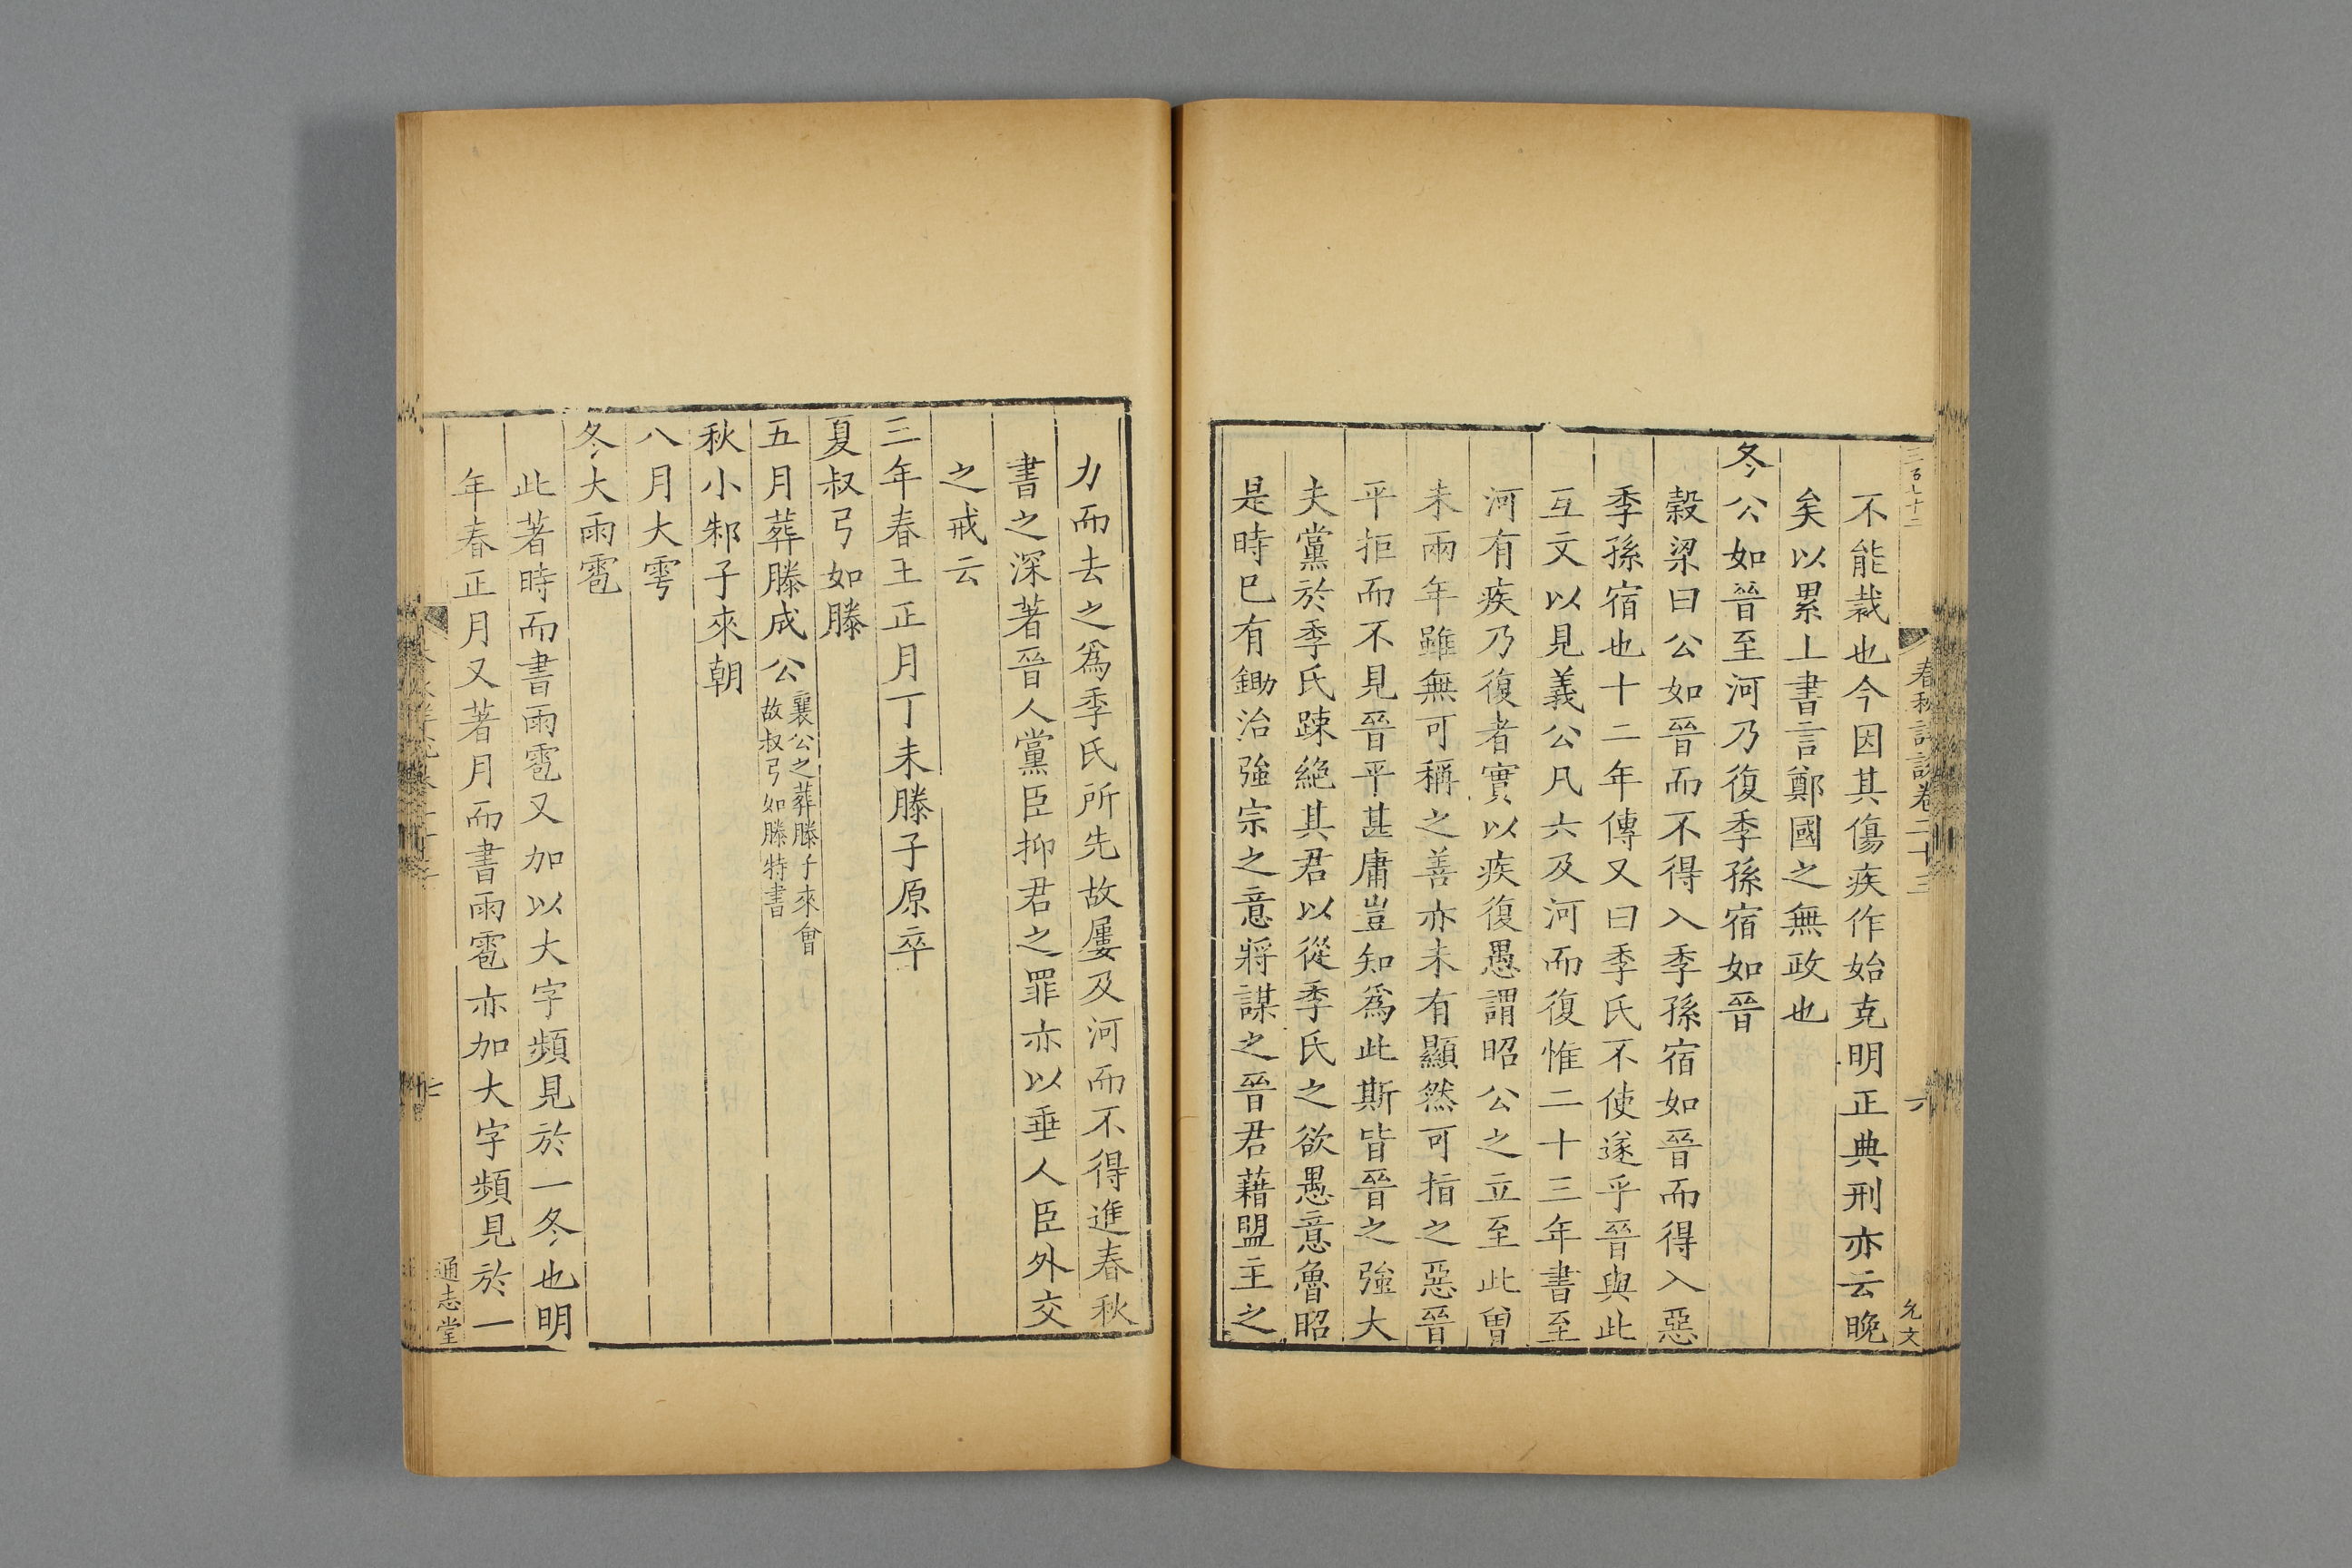 三百七十二
春秋詳說卷二十三
六
允文
不能裁也今因其傷疾作始克明正典刑亦云晚
矣以累上書言鄭國之無政也
冬公如晉至河乃復季孫宿如晉
穀梁曰公如晉而不得入季孫宿如晉而得入惡
季孫宿也十二年傳又曰季氏不使遂乎晉與此
互文以見義公凡六及河而復惟二十三年書至
河有疾乃復者實以疾復愚謂昭公之立至此曾
未兩年雖無可稱之善亦未有顯然可指之惡晉
平拒而不見晉平甚庸豈知為此斯皆晉之強大
夫黨於季氏踈絶其君以從季氏之欲愚意魯昭
是時已有鋤治強宗之意將謀之晉君藉盟主之
力而去之爲季氏所先故屢及河而不得進春秋
書之深著晉人黨臣抑君之罪亦以垂人臣外交
之戒云
三年春王正月丁未滕子原卒
夏叔弓如滕
五月葬滕成公襄公之葬滕子來會
故叔弓如滕特書
秋小邾子來朝
八月大雩
冬大雨雹
此著時而書雨雹又加以大字頻見於一冬也明
年春正月又著月而書雨雹亦加大字頻見於一
通志堂